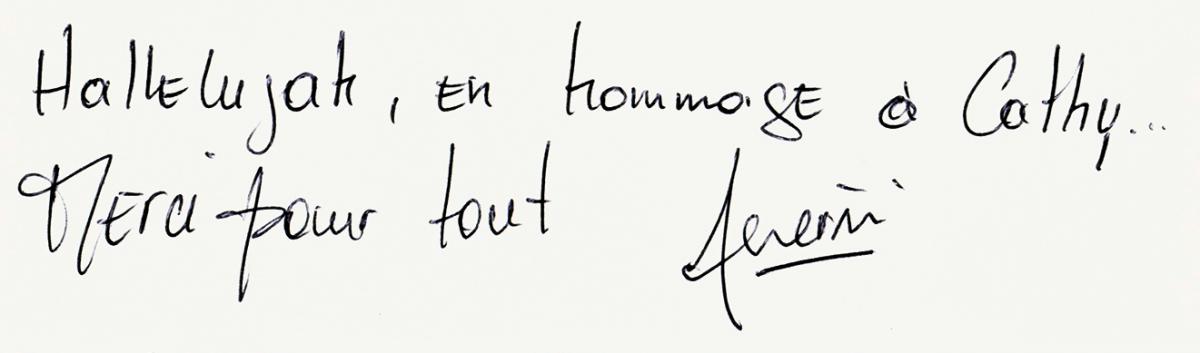 Hallelujah, en hommage à Cathy...
Merci pour tout